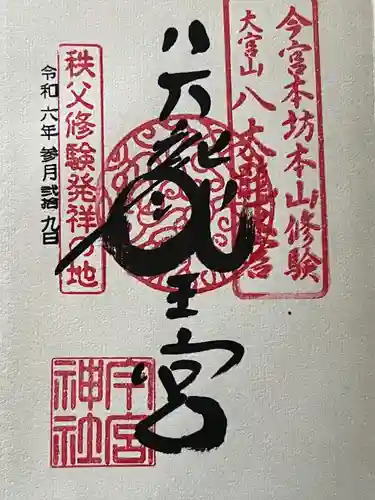 今宮本坊本山修験
大宮山八大龍王宮
八大龍王宮
秩父修験発祥の地
令和六年参月弐拾九日
今宮
神社